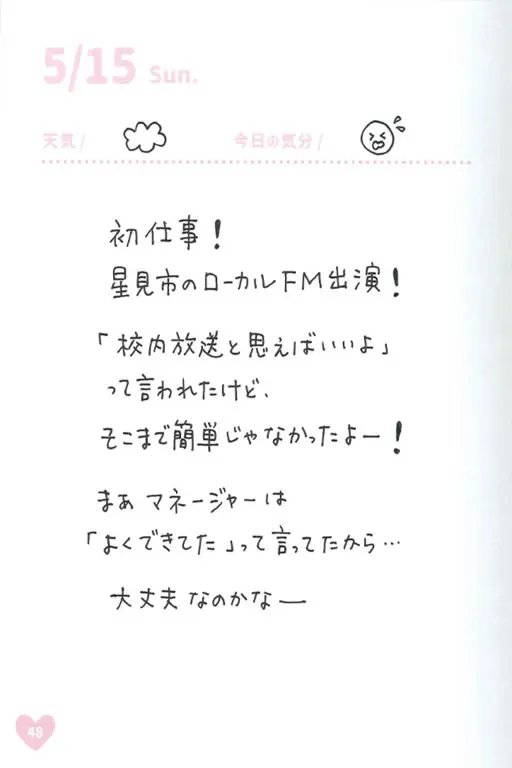 5/15 Sun.
天気/
今日の気分/
初仕事!
星見市のローカルFM出演!
「校内放送と思えばいいよ」
って言われたけど、
そこまで簡単じゃなかったよー!
まあ マネージャーは
「よくできてた」って言ってたから…
大丈夫なのかなー
48